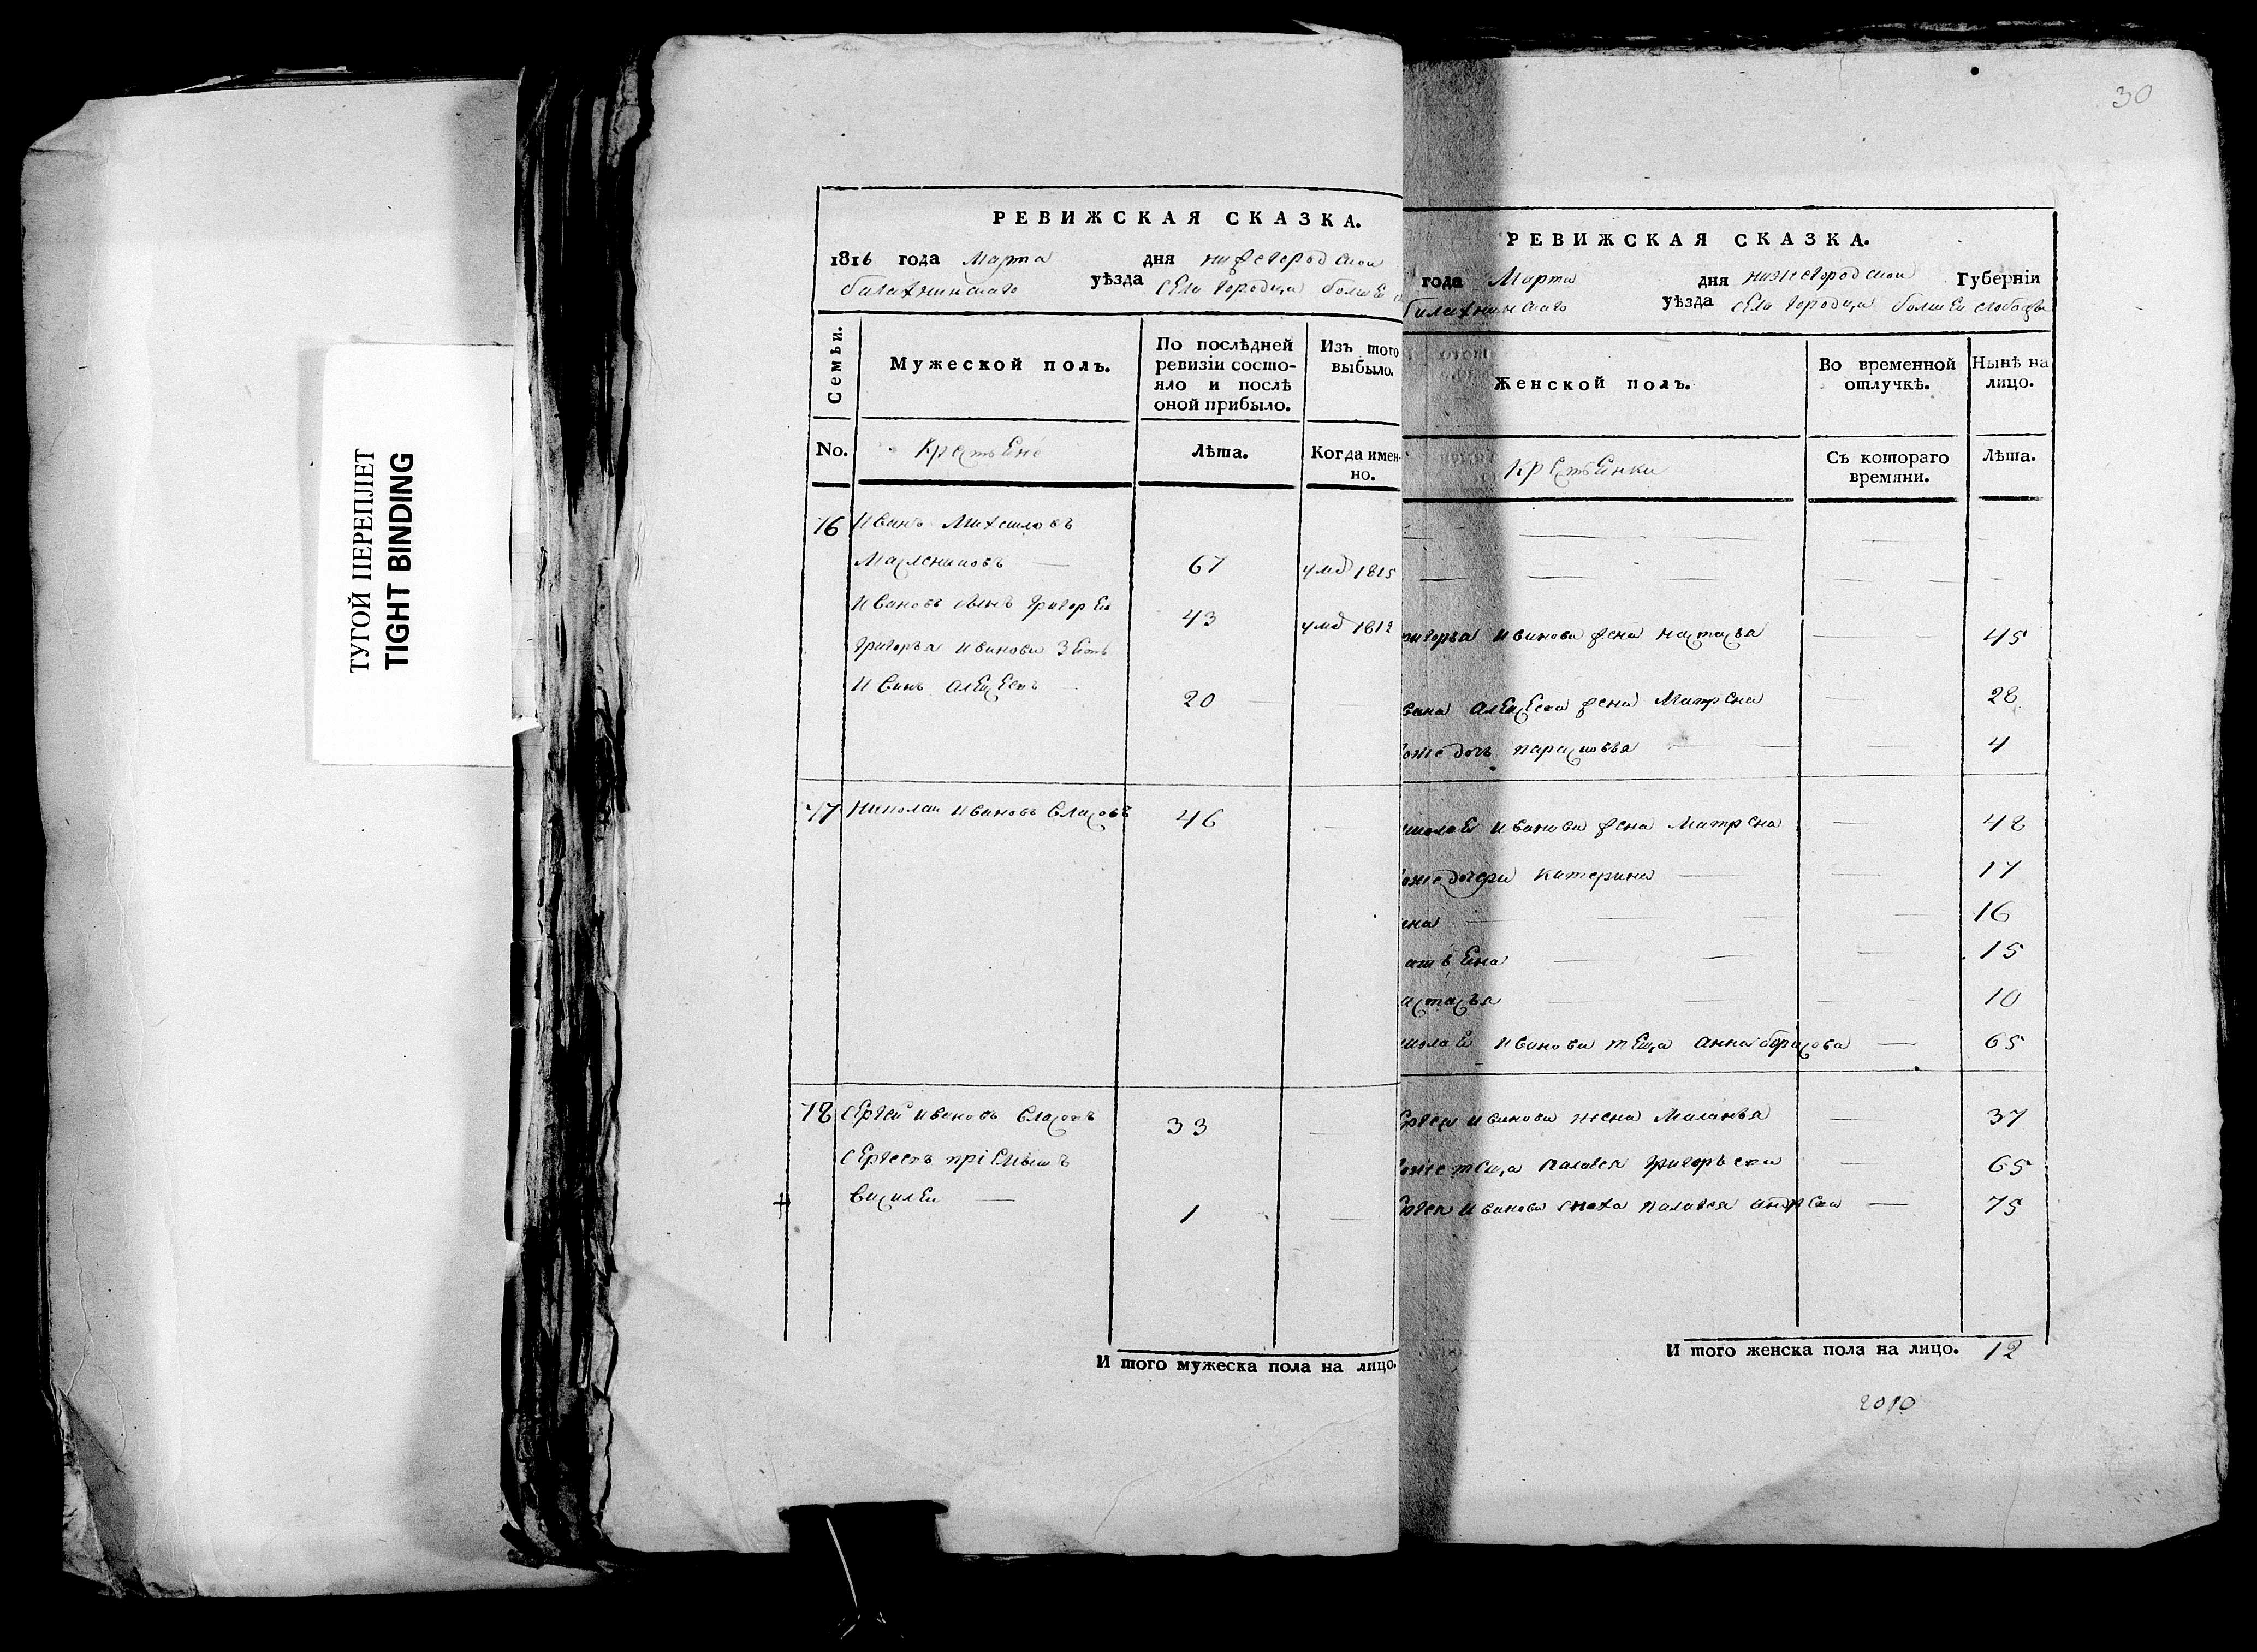 ТУГОЙ ПЕРЕПЛЕТ
TIGHT BINDING
РЕВИЖСКАЯ СКАЗКА.
1816 года Марта дня нижегородской
балахнинскаго уѣзда села городца болшей
Семьи.
Мужеской полъ.
По послѣдней ревизіи состояло и послѣ оной прибыло.
Изъ того выбыло.
No.
Крестьене
Лѣта.
Когда именно.
76 Иванъ Михаиловъ
Маслениковъ — 67 умд 1815
Ивановъ сынъ григорей 43 умд 1812
Григорья Иванова зеть
Иванъ Алексеевъ — 20
77 Николаи Ивановъ Власовъ 46
78 Сергей Ивановъ Власовъ 33
Сергеевъ пріемышъ
Василеи — 1
И того мужеска пола на лицо.
30
РЕВИЖСКАЯ СКАЗКА.
года Марта дня нижегородской Губерніи
балахнинскаго уѣзда села городца болшей слободы
Женской полъ.
Во временной отлучкѣ.
Нынѣ на лицо.
Крестьянки
Съ котораго времяни.
Лѣта.
григорья Иванова жена настасья — 45
вана Алексеева жена Матрена — 28
оже дочь парасковья — 4
иколаи Иванова жена Матрена — 48
оже дочери катерина — 17
ена — 16
атьена — 15
астасья — 10
иколаи Иванова теща Анна борисова — 65
ергея Иванова жена Маланья — 37
оже теща палагея григорьева — 65
ергея Иванова снаха палагея андреева — 75
И того женска пола на лицо. 12
2010